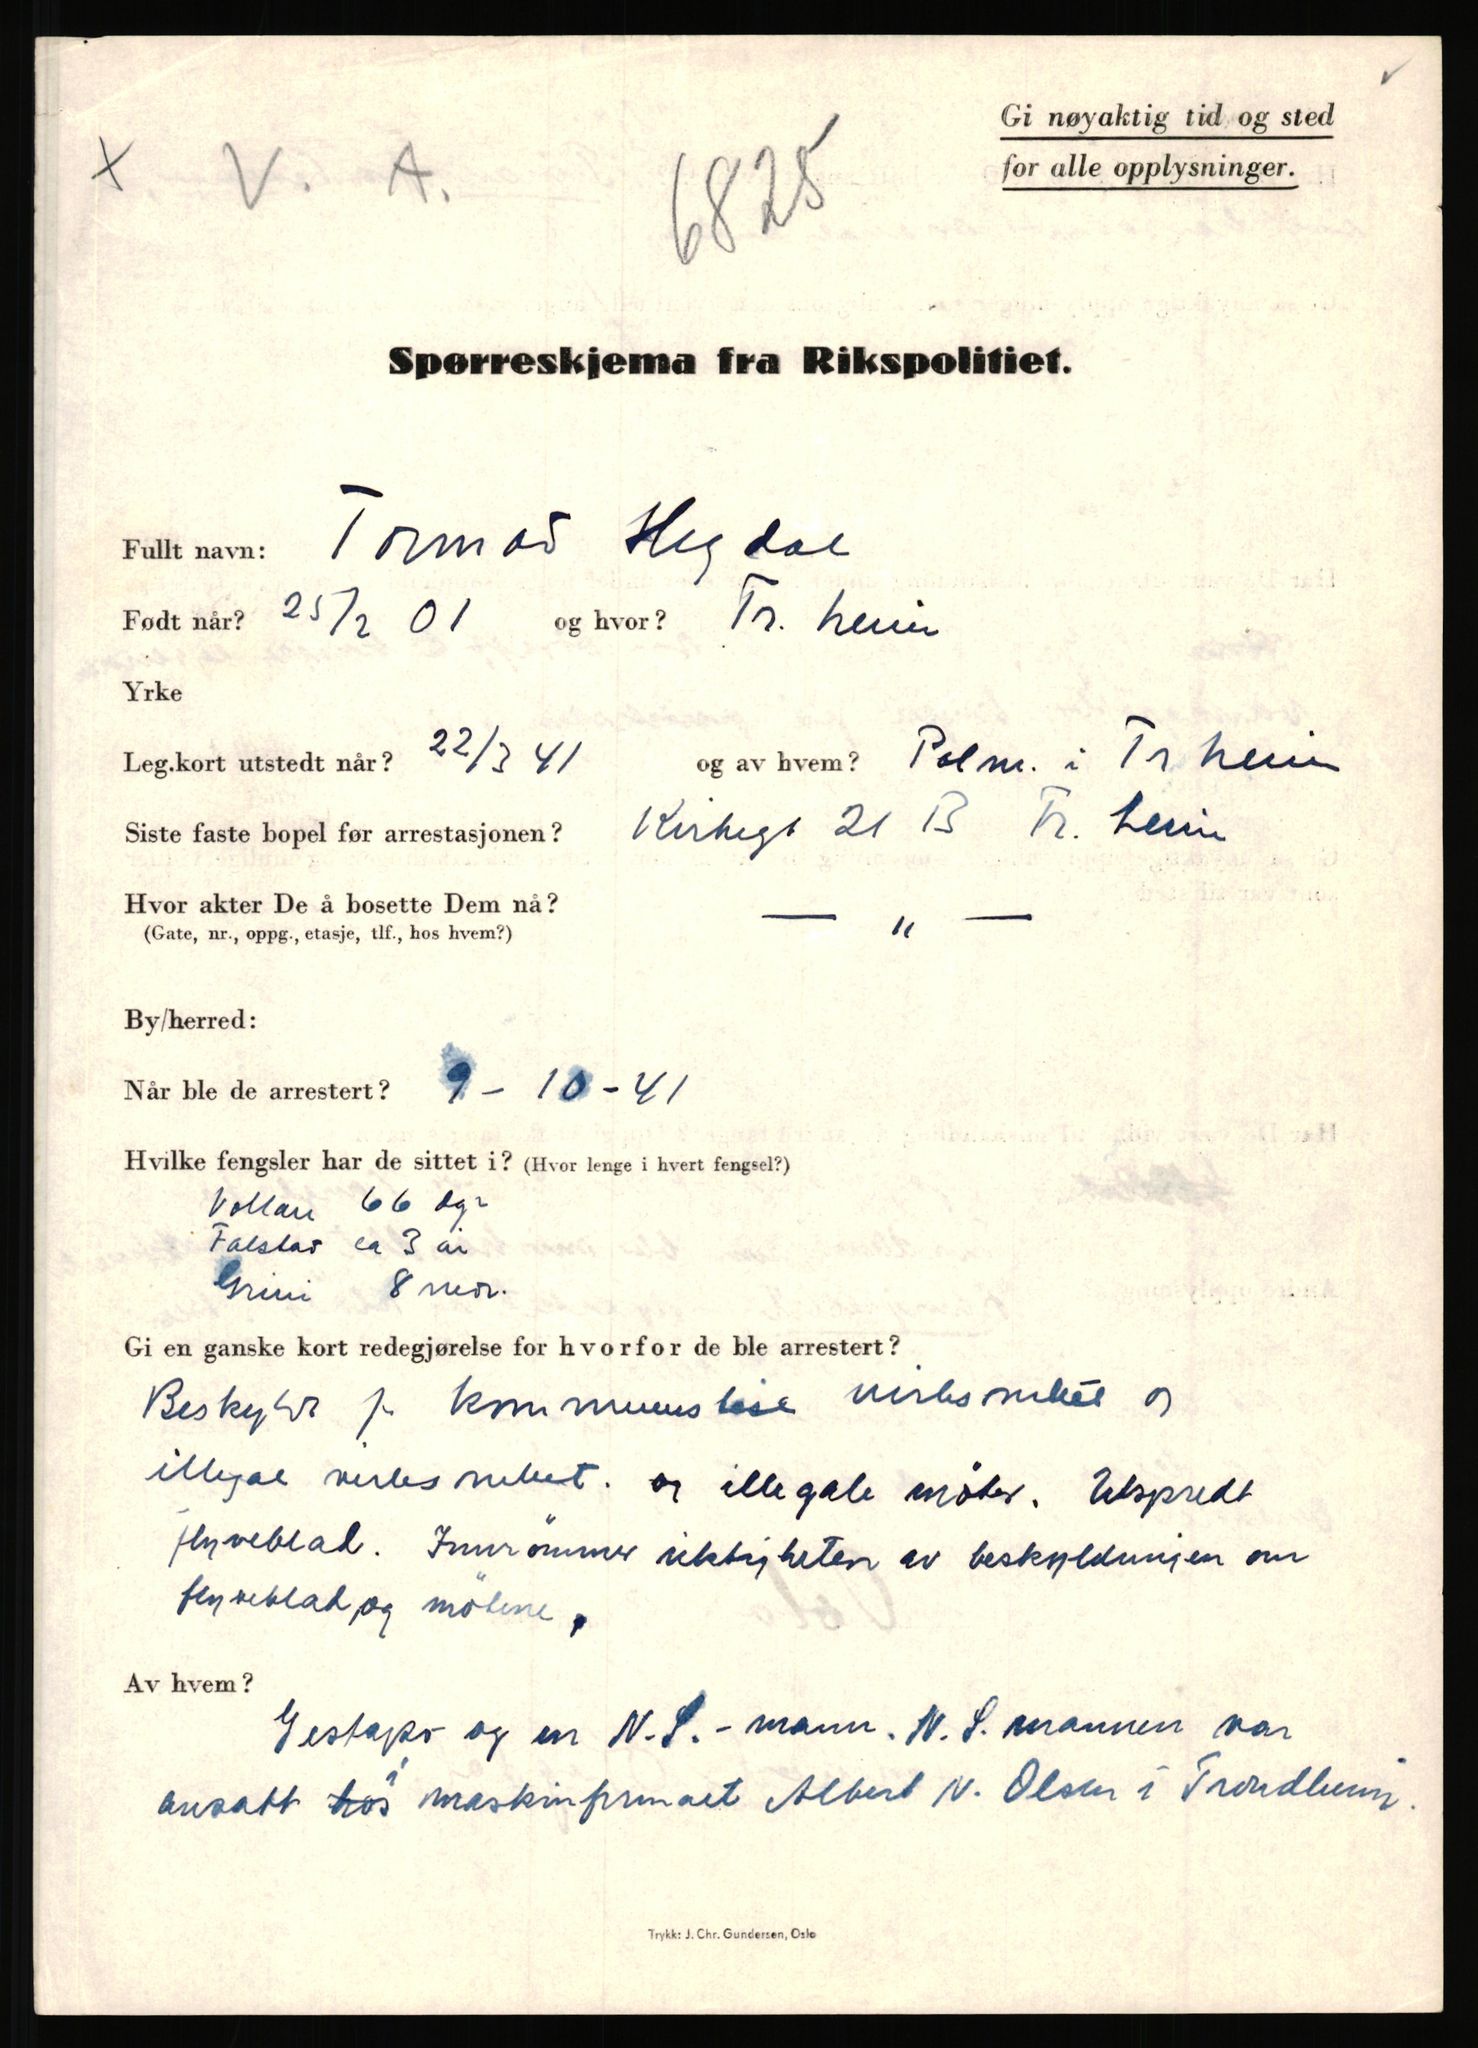 Gi nøyaktig tid og sted
for alle opplysninger.
x V. A. 6825
Spørreskjema fra Rikspolitiet.
Fullt navn: Tormod Hegdal
Født når? 25/2 01 og hvor? Tr.heim
Yrke
Leg.kort utstedt når? 22/3 41 og av hvem? Polm. i Trheim
Siste faste bopel før arrestasjonen? Kirkegt 21 B Tr.heim
Hvor akter De å bosette Dem nå? — „ —
(Gate, nr., oppg., etasje, tlf., hos hvem?)
By/herred:
Når ble de arrestert? 9-10-41
Hvilke fengsler har de sittet i? (Hvor lenge i hvert fengsel?)
Vollan 66 dgr
Falstad ca 3 år
Grini 8 mdr.
Gi en ganske kort redegjørelse for hvorfor de ble arrestert?
Beskyldt f. kommunistisk virksomhet og
illegal virksomhet. og illegale möter. Utspredt
flyveblad. Innrömmer riktigheten av beskyldningen om
flyveblad, og mötene.
Av hvem?
Gestapo og en N.S.-mann. N.S. mannen var
ansatt hos i maskinfirmaet Albert N. Olsen i Trondheim.
Trykk: J. Chr. Gundersen, Oslo